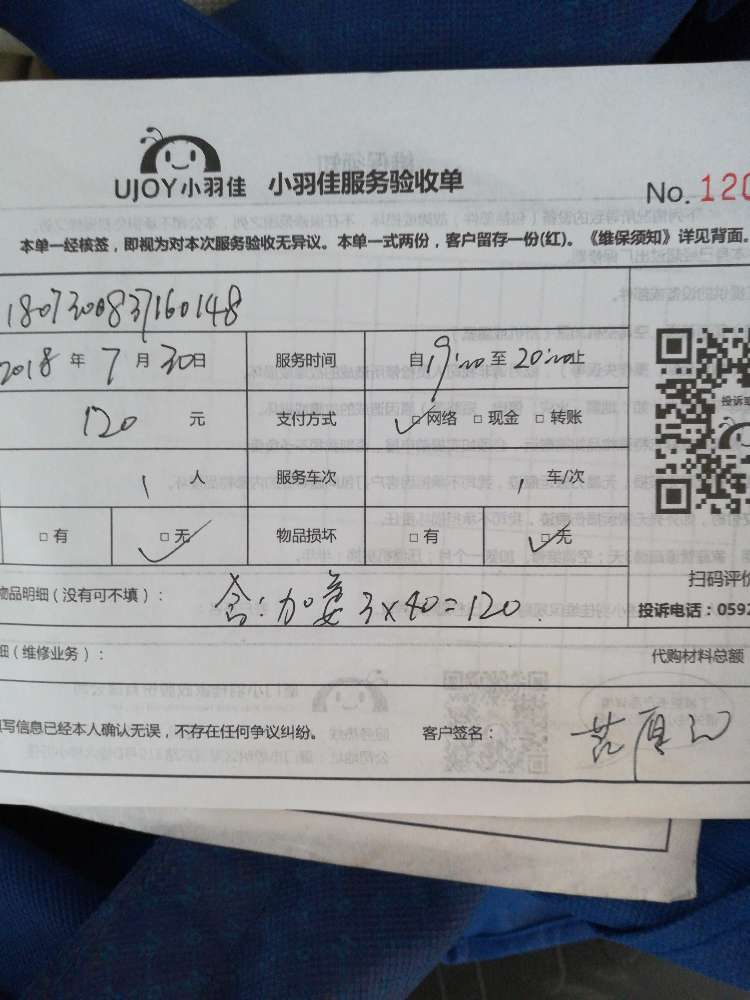 UJOY小羽佳 小羽佳服务验收单
No. 120
本单一经核签，即视为对本次服务验收无异议。本单一式两份，客户留存一份(红)。《维保须知》详见背面。
1807300837160148
2018 年 7 月 30 日 服务时间 自 19:00 至 20:00 止
120 元 支付方式 □网络 □ 现金 □ 转账
1 人 服务车次 1 车/次
□ 有 □ 无 物品损坏 □ 有 □ 无
物品明细（没有可不填）： 3×40=120
扫码评价
投诉电话：0592
细（维修业务）： 代购材料总额
填写信息已经本人确认无误，不存在任何争议纠纷。 客户签名：